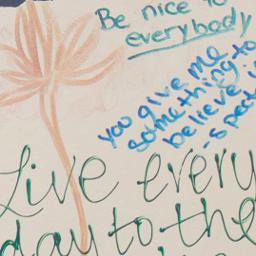 Be nice to
everybody
you give me
something to
believe in
-spect
Live every
day to the